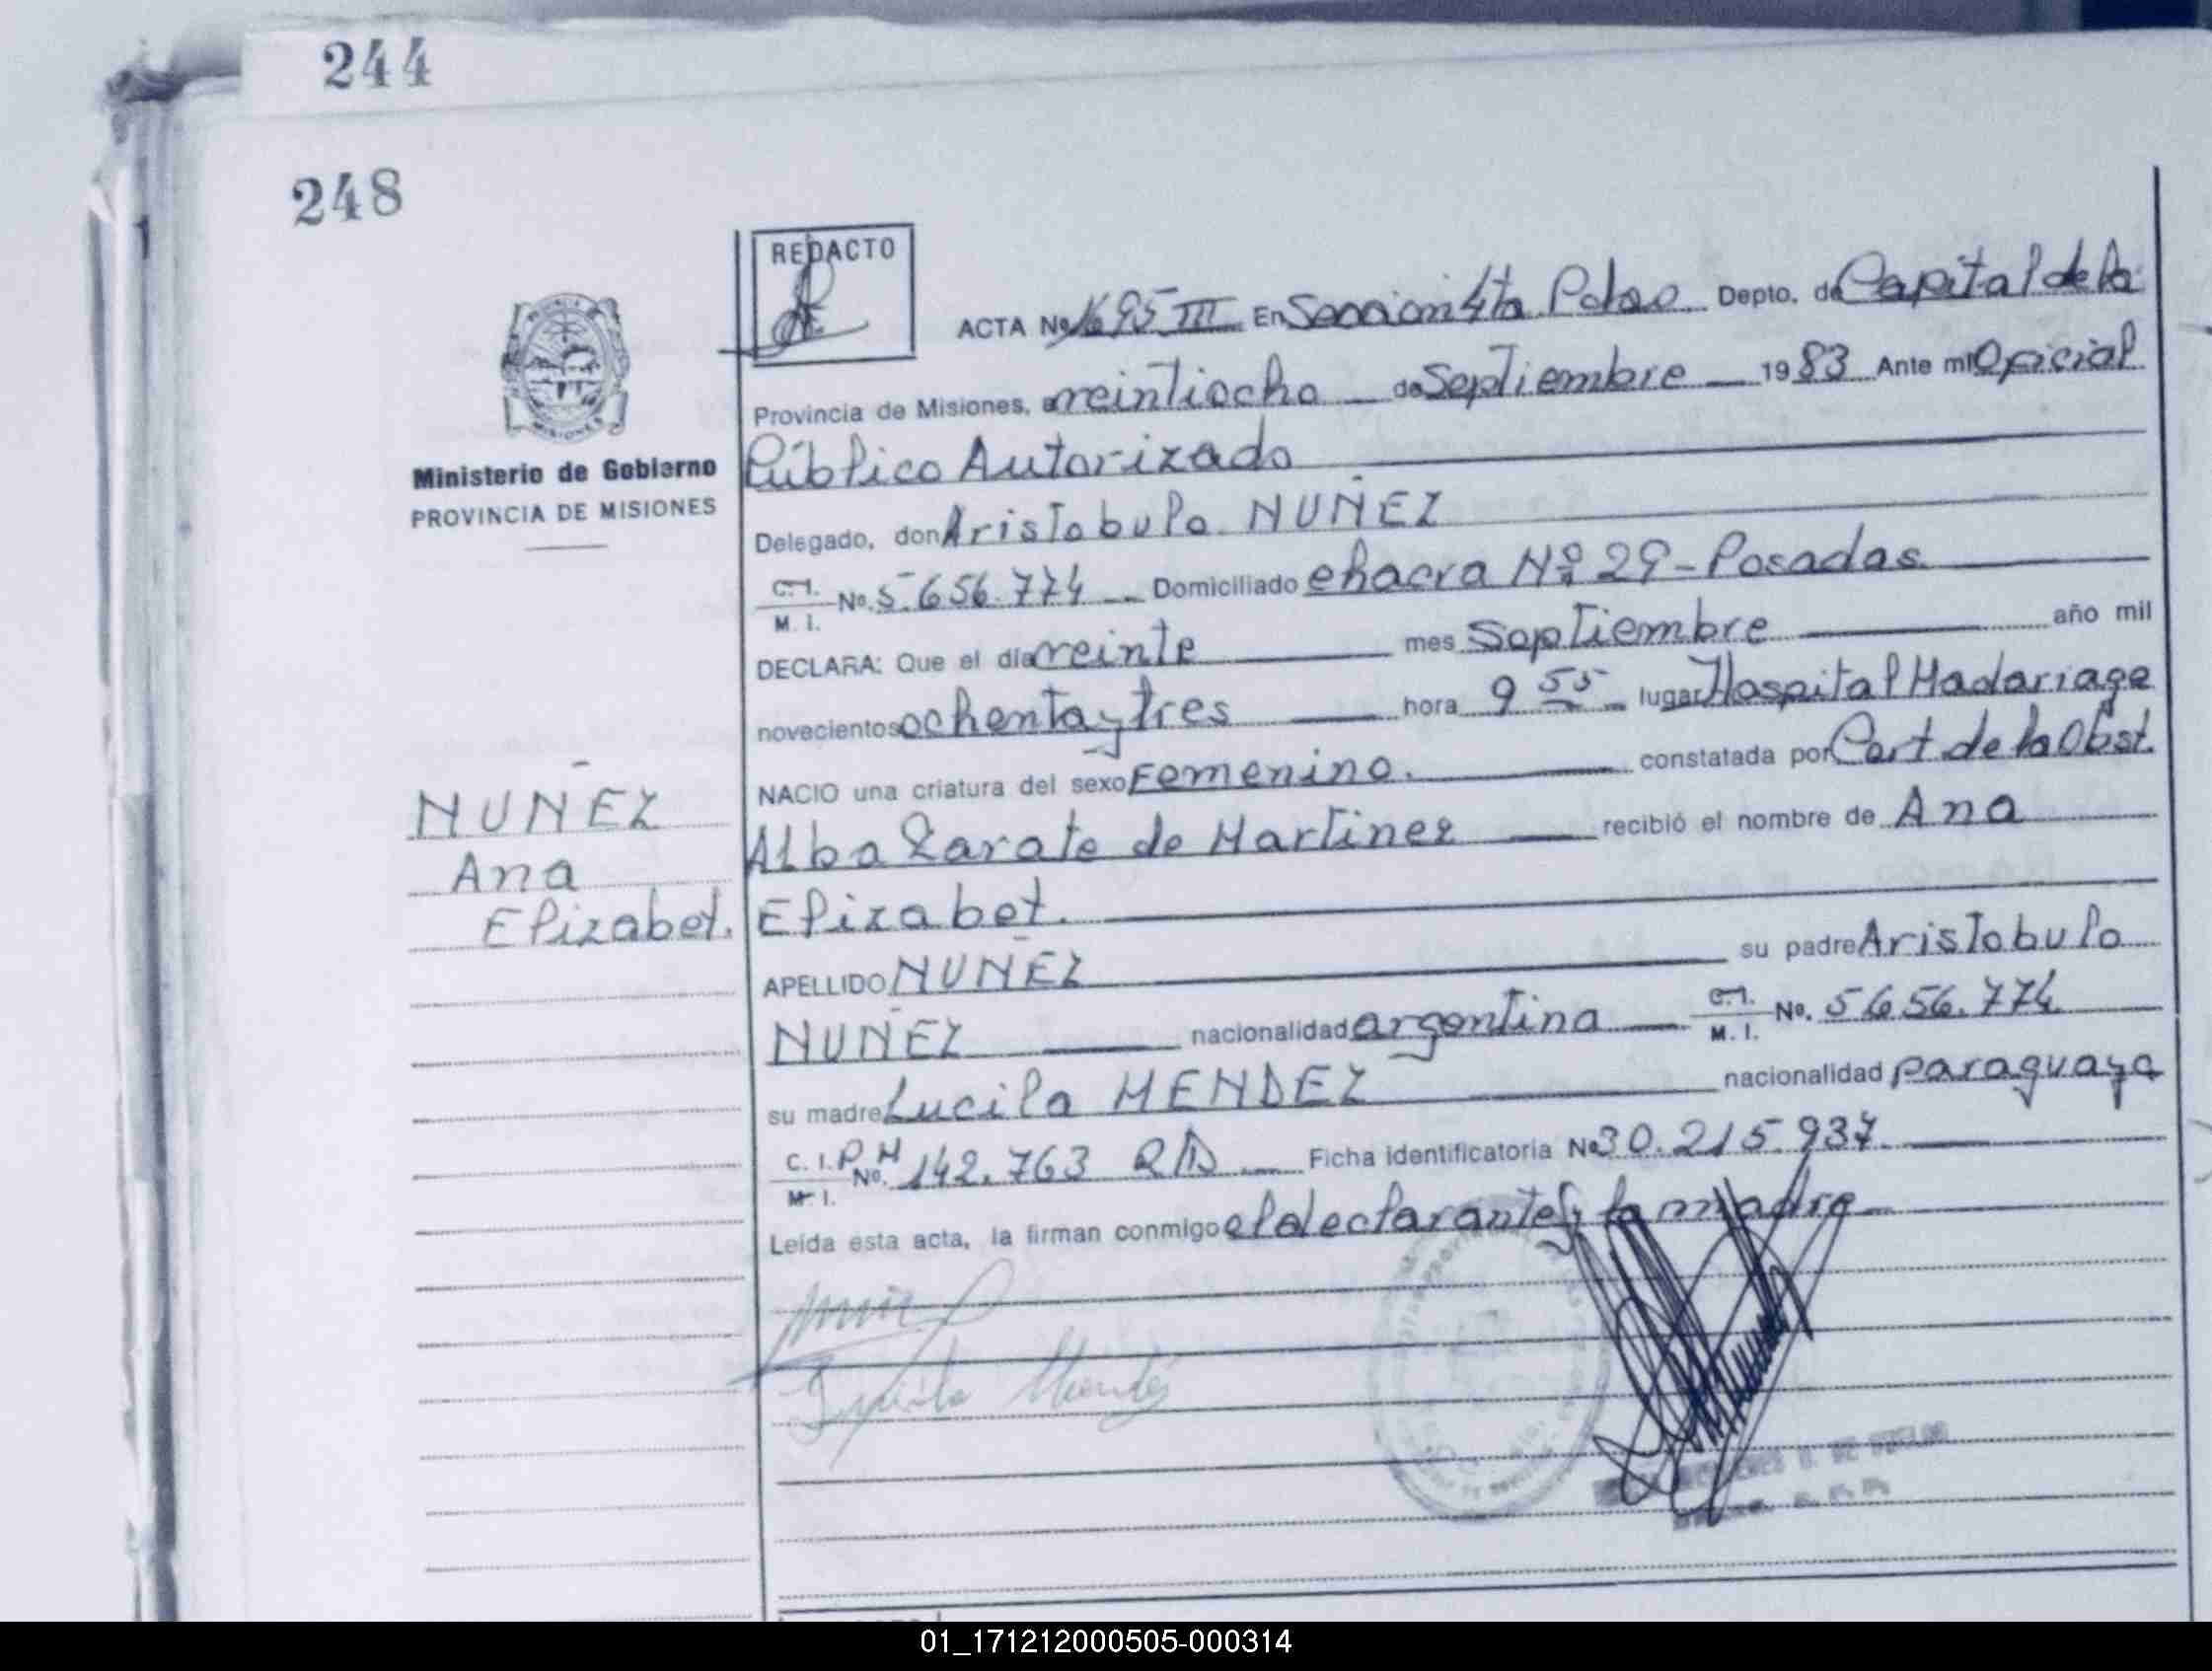 244
248
REDACTO
ACTA No 1695 III En Seccion 4ta Pdas Depto. de Capital de la
Provincia de Misiones, a veintiocho de Septiembre 1983 Ante mi Oficial
Público Autorizado
Ministerio de Gobierno
PROVINCIA DE MISIONES
Delegado, don Aristobulo NUÑEZ
C.I. M. I. No. 5.656.774 Domiciliado chacra Nº 29 - Posadas
DECLARA: Que el día veinte mes Septiembre año mil
novecientos ochenta y tres hora 9 55 lugar Hospital Madariaga
NACIO una criatura del sexo Femenino. constatada por Cert de la Obst.
Alba Zarate de Martinez recibió el nombre de Ana
Elizabet.
NUÑEZ
Ana
Elizabet.
APELLIDO NUÑEZ su padre Aristobulo
NUÑEZ nacionalidad argentina C.I. M. I. No. 5.656.774
su madre Lucila MENDEZ nacionalidad paraguaya
C. I. M. I. No. 142.763 Ficha identificatoria No 30.215.937
Leída esta acta, la firman conmigo el declarante y la madre
01_171212000505-000314